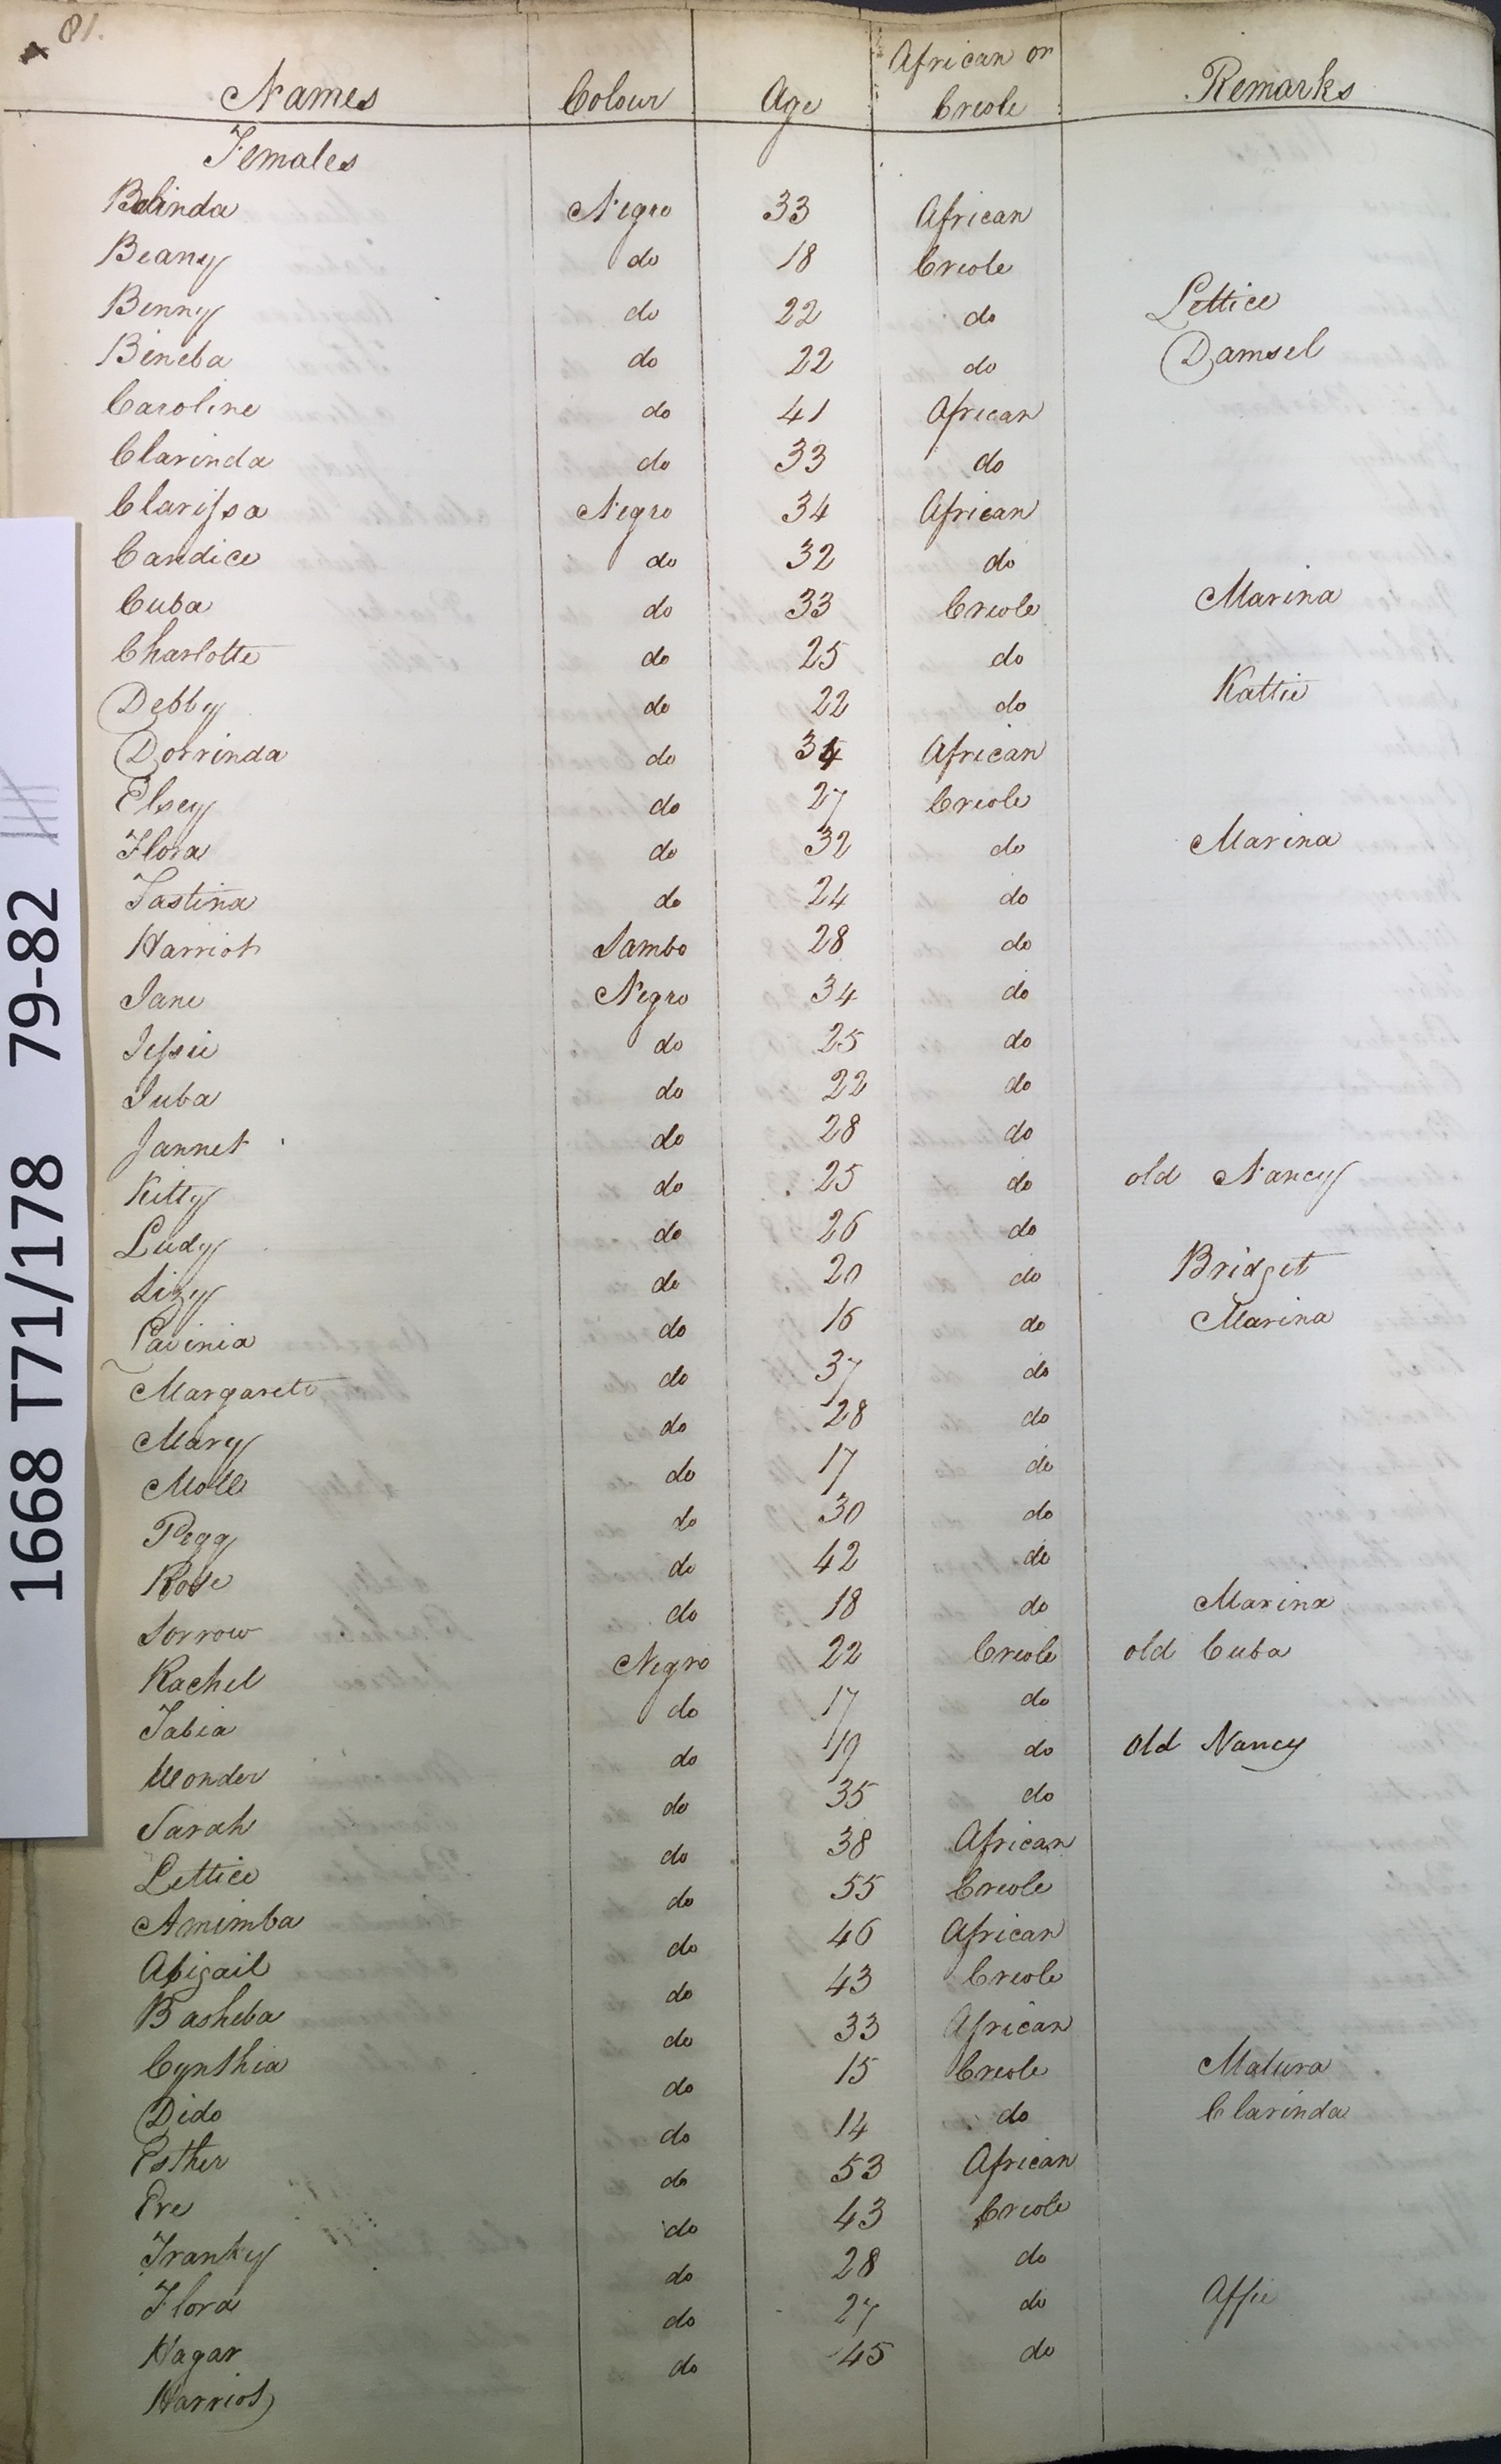 81.
Names Colour Age African or Creole Remarks
Females
Belinda Negro 33 African
Beany do 18 Creole
Benny do 22 do Lettice
Bineba do 22 do Damsel
Caroline do 41 African
Clarinda do 33 do
Clarissa Negro 34 African
Candice do 32 do
Cuba do 33 Creole Marina
Charlotte do 25 do
Debby do 22 do Kattie
Dorrinda do 34 African
Elsey do 27 Creole
Flora do 32 do Marina
Fastina do 24 do
Harriot Sambo 28 do
Jane Negro 34 do
Jessie do 25 do
Juba do 22 do
Jannet do 28 do
Kitty do 25 do old Nancy
Ludy do 26 do
Lizy do 20 do Bridget
Lavinia do 16 do Marina
Margarett do 37 do
Mary do 28 do
Moll do 17 do
Pegg do 30 do
Rose do 42 do
Sorrow do 18 do Marina
Rachel Negro 22 Creole old Cuba
Tabia do 17 do
Wonder do 19 do Old Nancy
Sarah do 35 do
Lettice do 38 African
Amimba do 55 Creole
Abigail do 46 African
Basheba do 43 Creole
Cynthia do 33 African
Dido do 15 Creole Malura
Esther do 14 do Clarinda
Eve do 53 African
Franky do 43 Creole
Flora do 28 do
Hagar do 27 do Affie
Harriot do 45 do
1668 T71/178 79-82